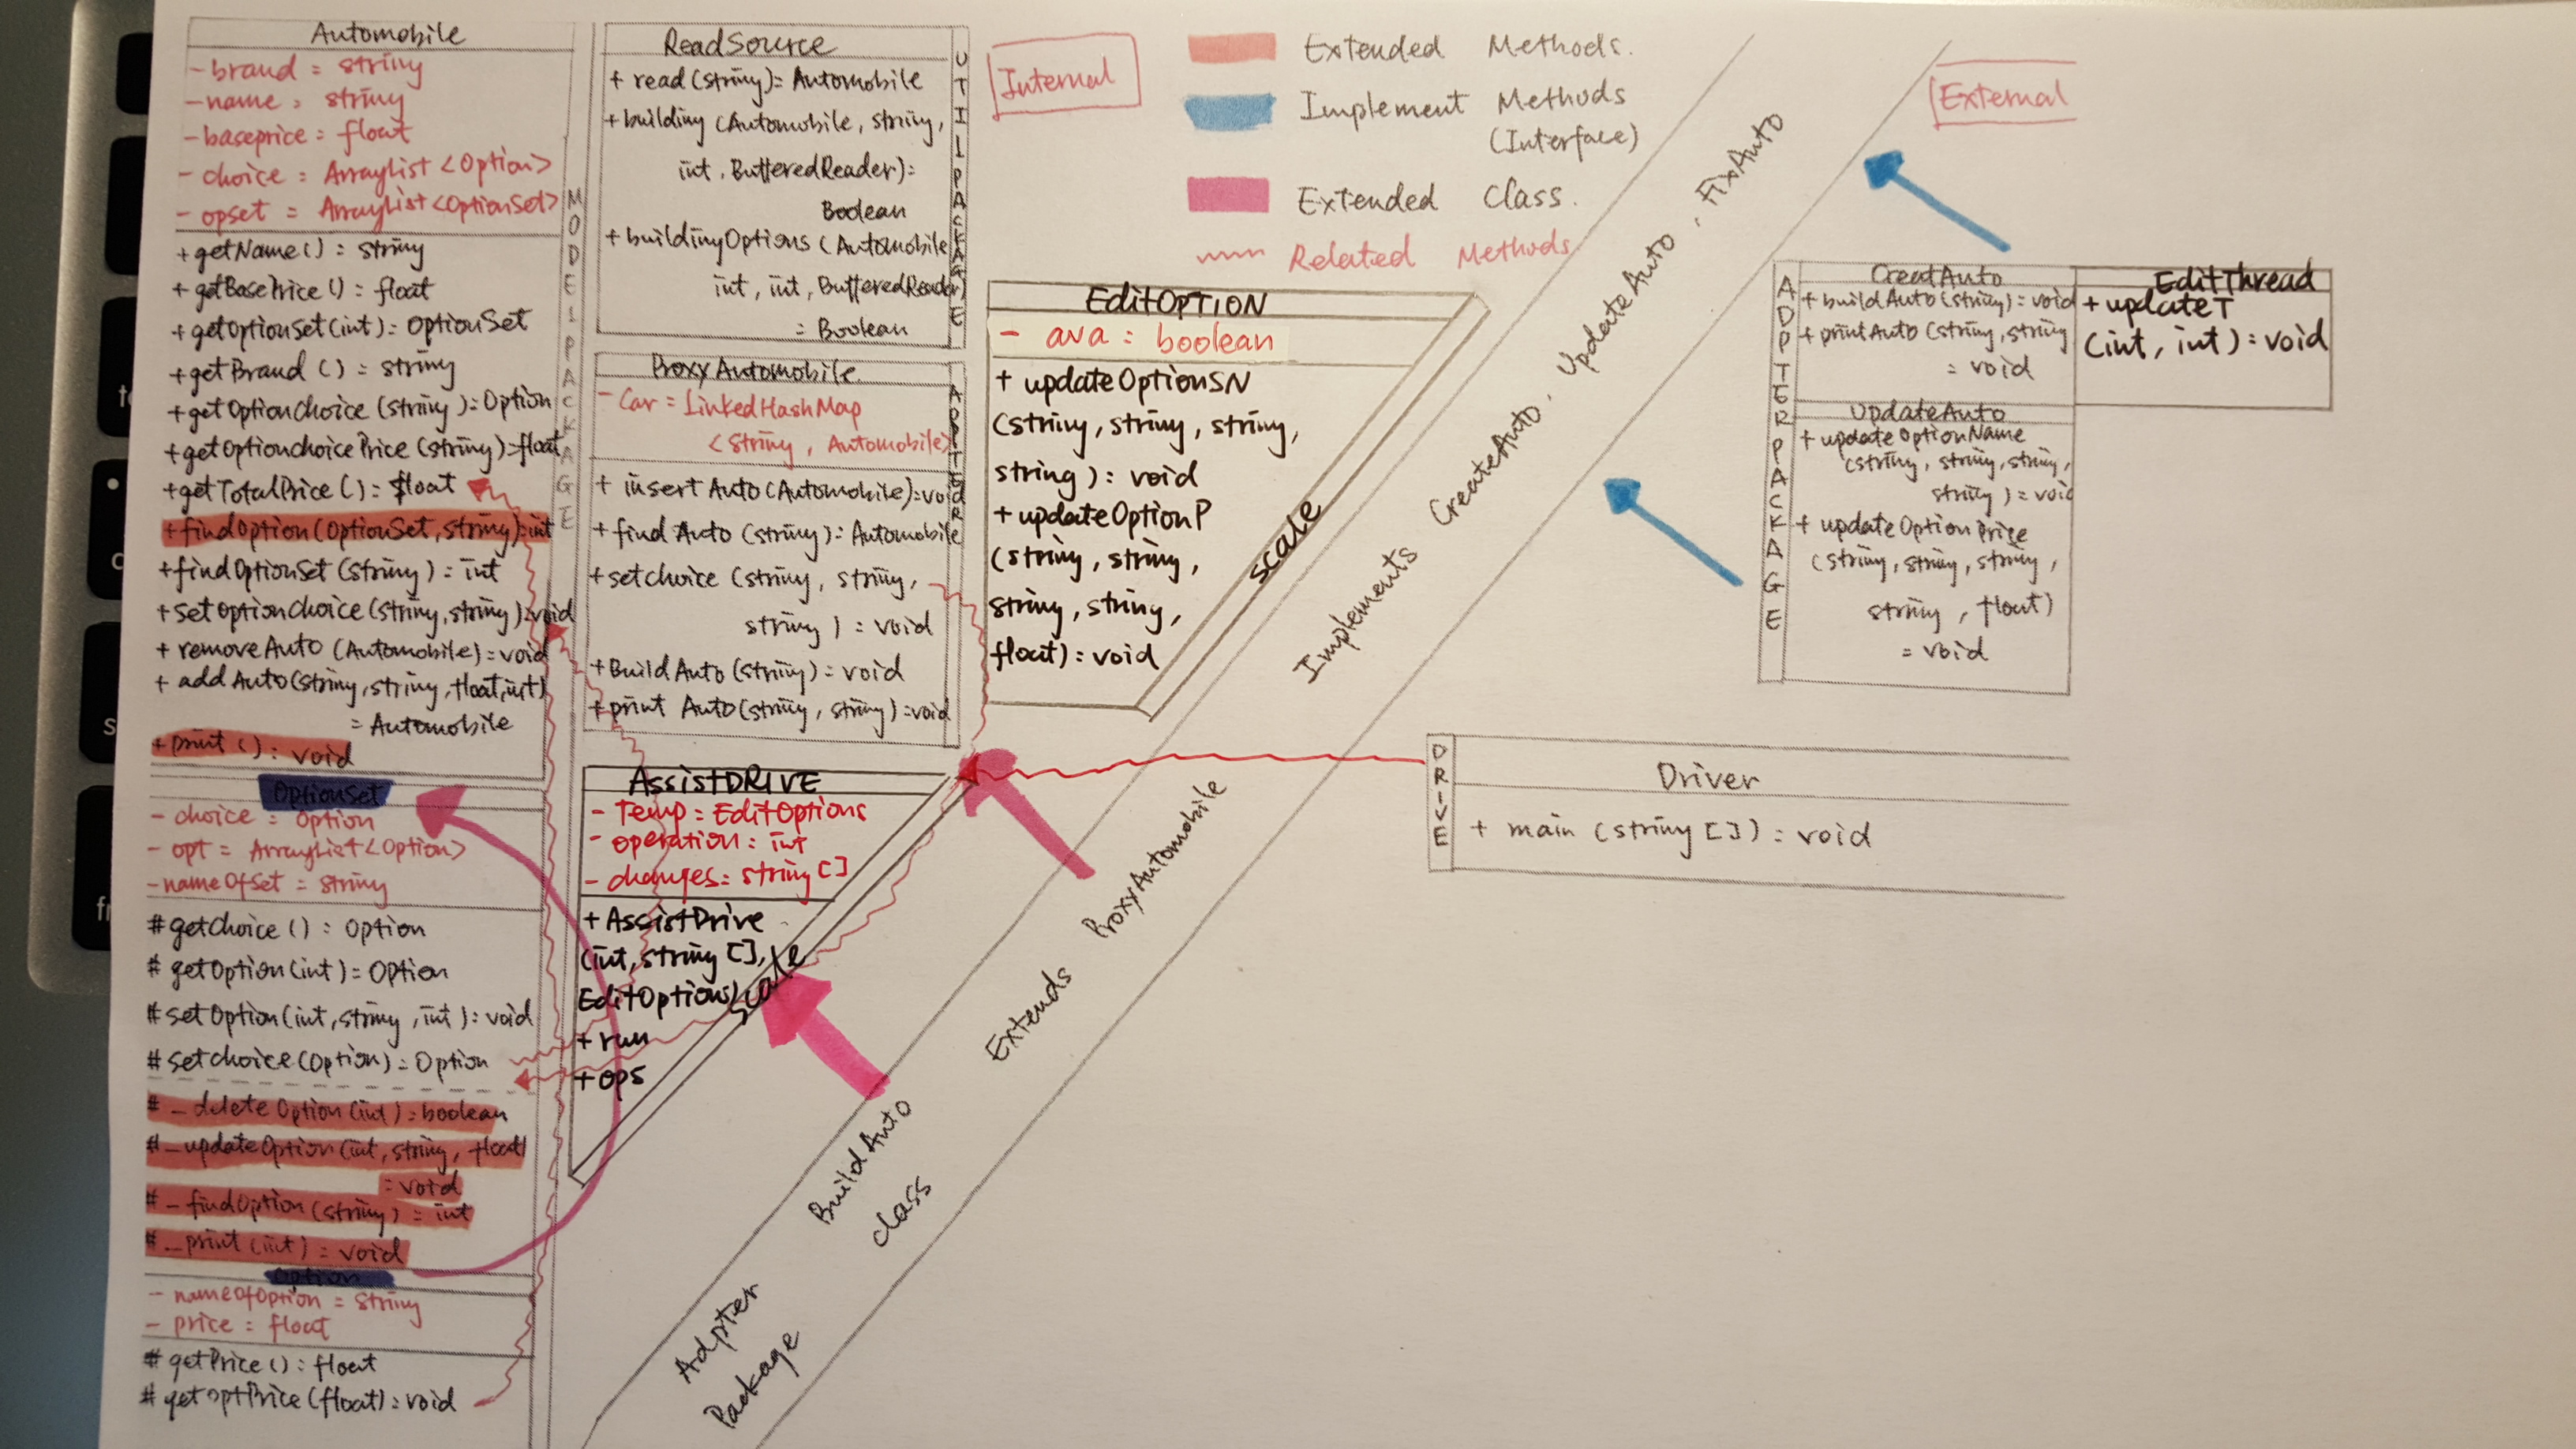 Automobile
- brand = string
- name = string
- baseprice = float
- choice = ArrayList <Option>
- opset = ArrayList <OptionSet>
+ getName() : string
+ getBasePrice() : float
+ getOptionSet(int) : OptionSet
+ getBrand () : string
+ getOptionChoice (string) : Option
+ getOptionchoicePrice (string) : float
+ getTotalPrice () : float
+ findOption (OptionSet, string) : int
+ findOptionSet (string) : int
+ setOptionChoice (string, string) : void
+ removeAuto (Automobile) : void
+ addAuto (string, string, float, int)
= Automobile
+ print () : void
MODEL PACKAGE
OptionSet
- choice : Option
- opt = ArrayList <Option>
- nameOfSet = string
# getchoice () : Option
# getOption (int) = Option
# setOption (int, string, int) : void
# setchoice (Option) : Option
# _ deleteOption (int) : boolean
# _ updateOption (int, string, float)
= void
# _ findOption (string) = int
# _ print (int) : void
Option
- nameOfOption = string
- price = float
# getPrice () : float
# getoptPrice (float) : void
ReadSource
+ read (string) = Automobile
+ building (Automobile, string,
int, ButteredReader) :
Boolean
+ buildingOptions (Automobile
int, int, ButteredReader)
= Boolean
UTIL PACKAGE
ProxyAutomobile
- Car = LinkedHashMap
<String, Automobile>
+ insertAuto (Automobile) : void
+ findAuto (string) : Automobile
+ setchoice (string, string,
string) : void
+ BuildAuto (string) : void
+ print Auto (string, string) : void
ADPTER
AssistDRIVE
- Temp = EditOptions
- operation : int
- changes : string []
+ AssistDrive
(int, string [],
EditOptions)
+ run
+ ops
scale
Internal
Extended Methods.
Implement Methods
(Interface)
Extended Class.
Related Methods
EditOPTION
- ava : boolean
+ updateOptionSN
(string, string, string,
string) : void
+ updateOptionP
(string, string,
string, string,
float) : void
scale
Implements CreateAuto, UpdateAuto, FixAuto
Extends ProxyAutomobile
BuildAuto
class
Adpter
Package
External
ADPTER PACKAGE
CreatAuto
+ buildAuto (string) = void
+ printAuto (string, string
= void
UpdateAuto
+ updateOptionName
(string, string, string,
string) = void
+ updateOptionPrice
(string, string, string,
string, float)
= void
EditThread
+ updateT
(int, int) : void
DRIVE
Driver
+ main (string []) : void